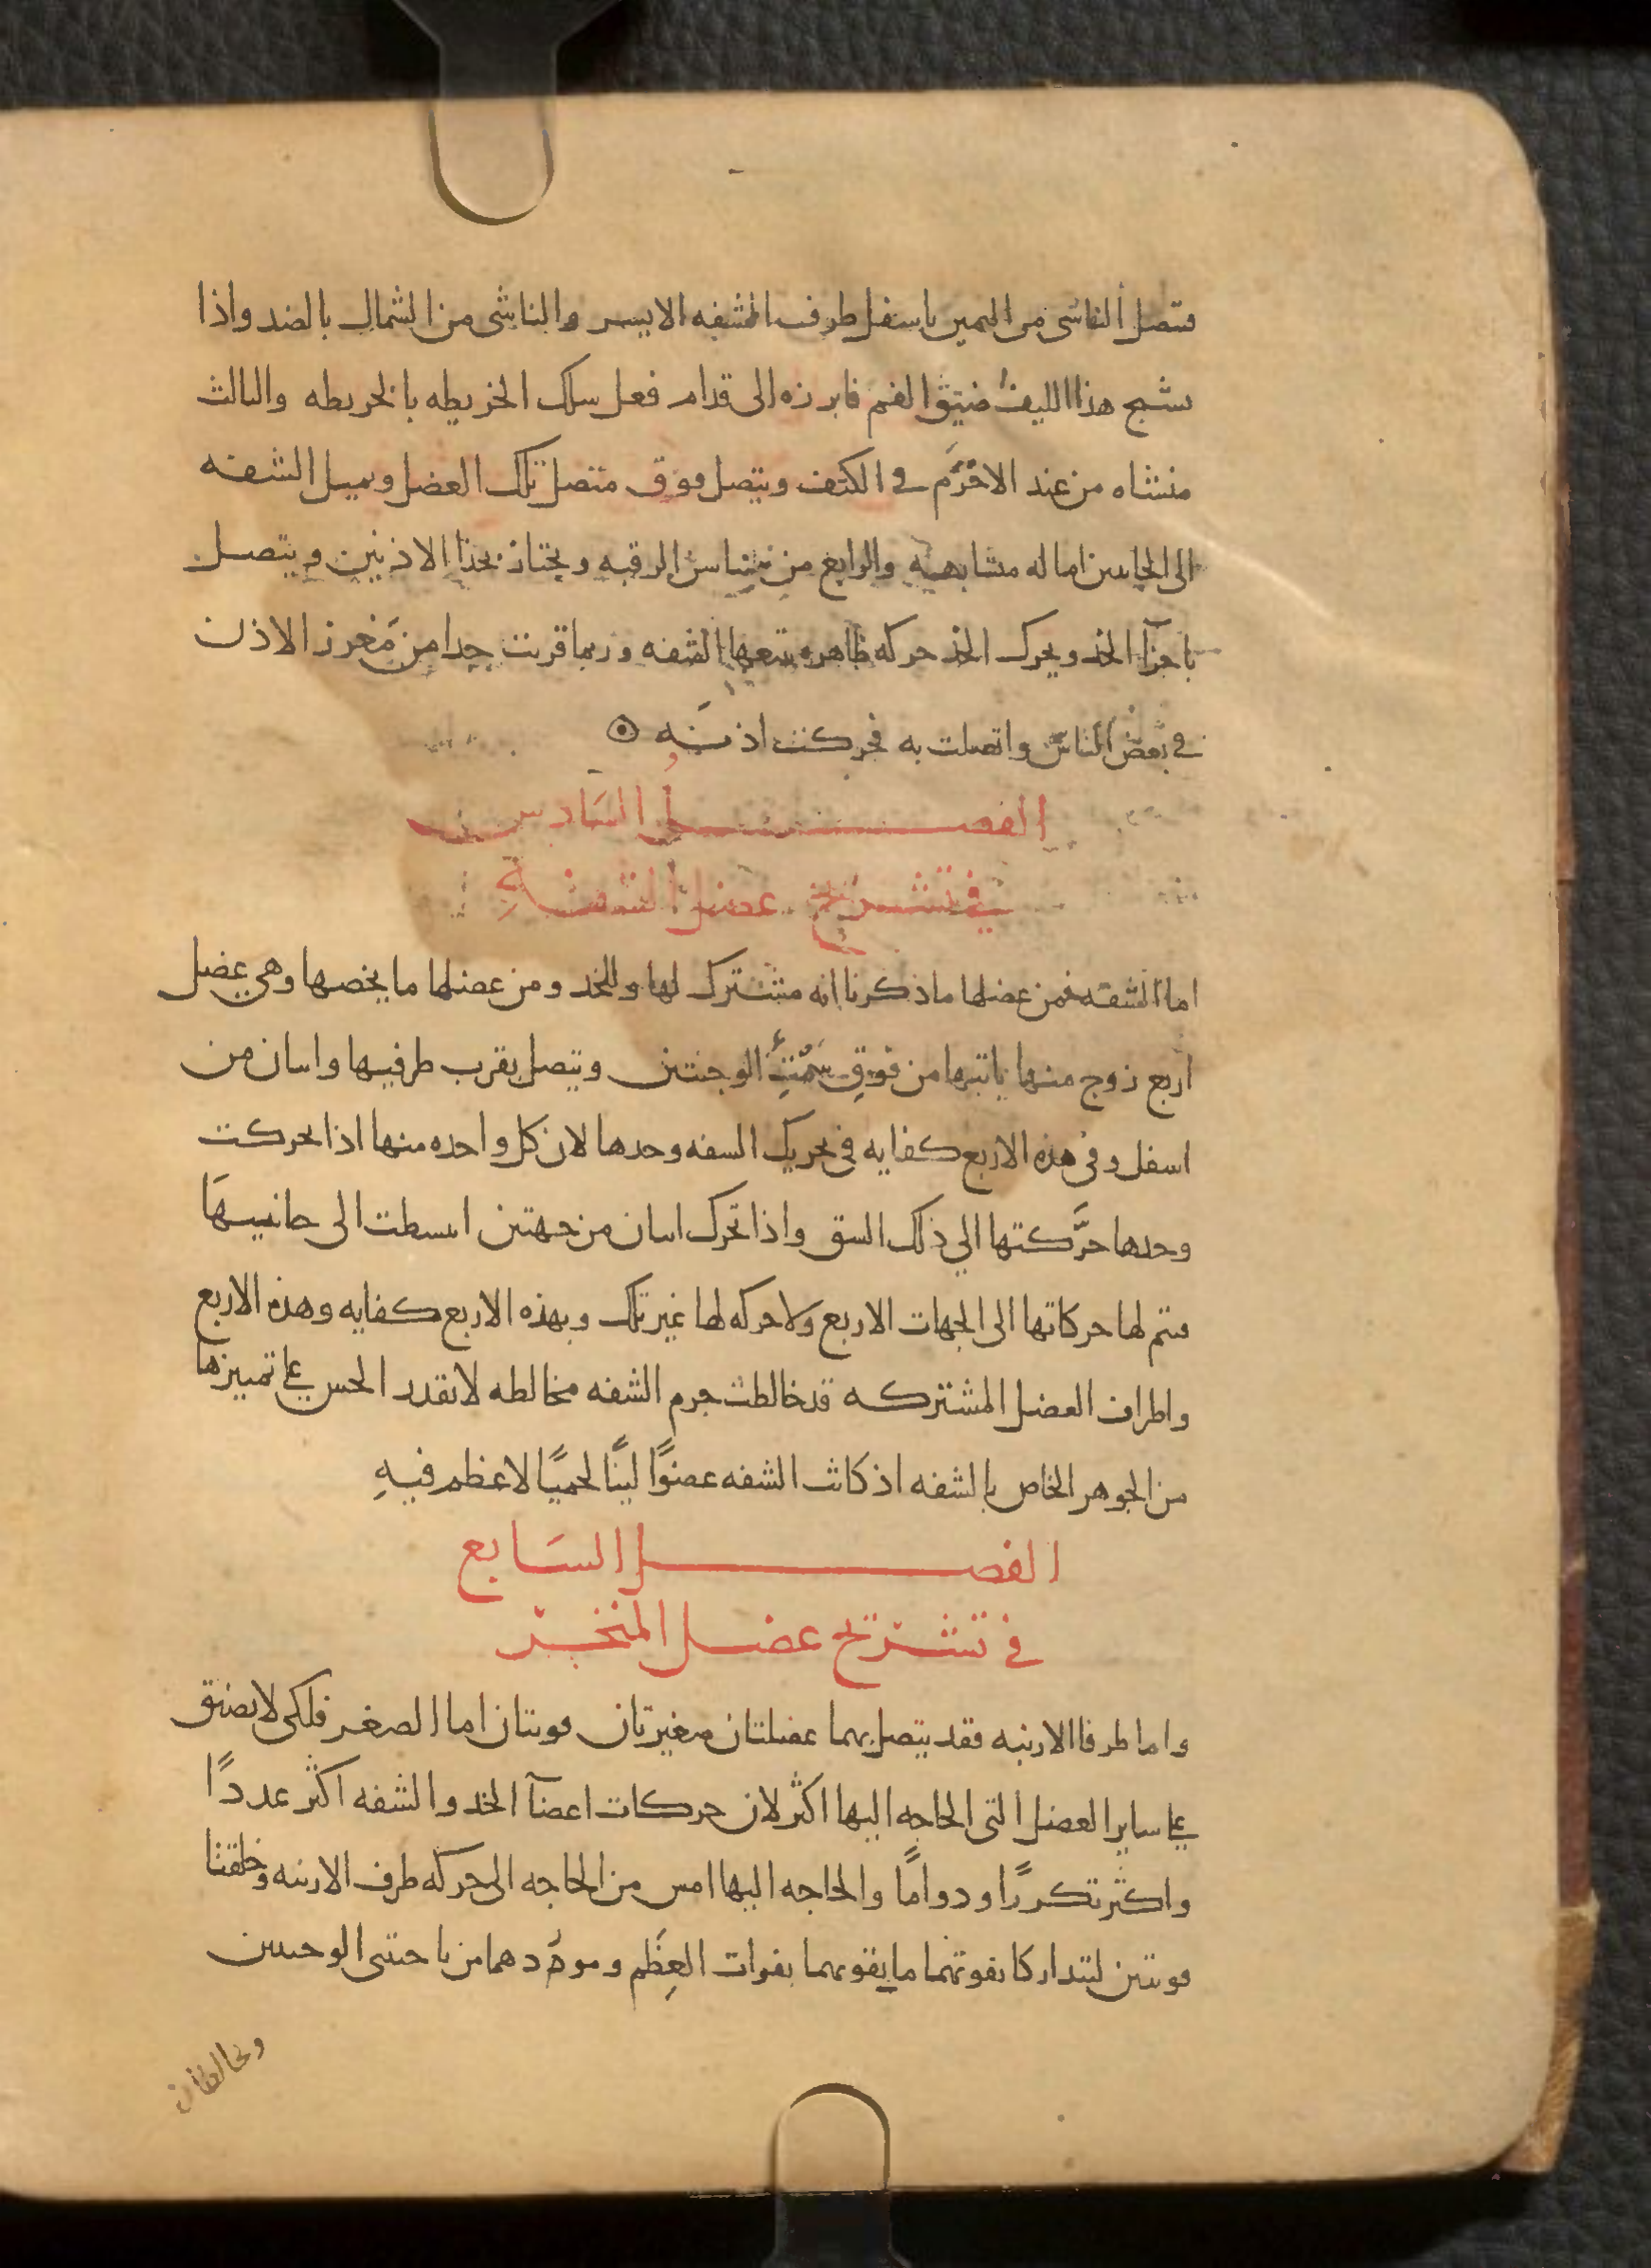 فتصل الناشى من اليمين باسفل طرف الشفه الايسر والناشى من الشمال بالضد واذا
تشنج هذا الليف ضيق الفم فابرزه الى قدام فعل سلك الخريطه بالخريطه والثالث
منشاه من عند الاخرم في الكتف ويتصل فوق متصل تلك العضل ويميل الشفه
الى الجانبين اماله متشابهه والرابع من سناسن الرقبه ويجتاز بحذا الاذنين ويتصل
باجزآ الخد ويحرك الخد حركه ظاهره تتبعها الشفه وربما قربت جدا من مَغرز الاذن
في بعض الناس واتصلت به فحركت اذنه
الفصل السَادس
في تشريح عضل الشفةِ
اما الشفه فمن عضلها ما ذكرنا انه مشترك لها وللخد ومن عضلها ما يخصها وهي عضل
اربع زوج منها ياتيها من فوق سَمْتِ الوجنتين ويتصل بقرب طرفيها واثنان من
اسفل وفى هذه الاربع كفايه فى تحريك الشفه وحدها لان كل واحده منها اذا تحركت
وحدها حرَّكتها الي ذلك الشق واذا تحرك اثنان من جهتين انبسطت الى جانبيهَا
فتم لها حركاتها الى الجهات الاربع ولا حركه لها غير تلك وبهذه الاربع كفايه وهذه الاربع
واطراف العضل المشتركه قد خالطت جرم الشفه مخالطه لا يقدر الحس على تمييزها
من الجوهر الخاص بالشفه اذ كانت الشفه عضوًا لينًا لحميًا لا عظم فيهِ
الفصل السَابع
في تشريح عضل المنخر
واما طرفا الارنبه فقد يتصل بهما عضلتان صغيرتان قويتان اما الصغر فلكى لا يضيق
على ساير العضل التى الحاجه اليها اكثر لان حركات اعضآ الخد والشفه اكثر عددًا
واكثر تكررًا ودوامًا والحاجه اليها امس من الحاجه الى حركه طرف الارنبه وخلقتا
قويتين لتتداركا بقوتهما ما يفوتهما بفوات العِظَم وموردهما من ناحيتى الوجنتين
وتخالطان